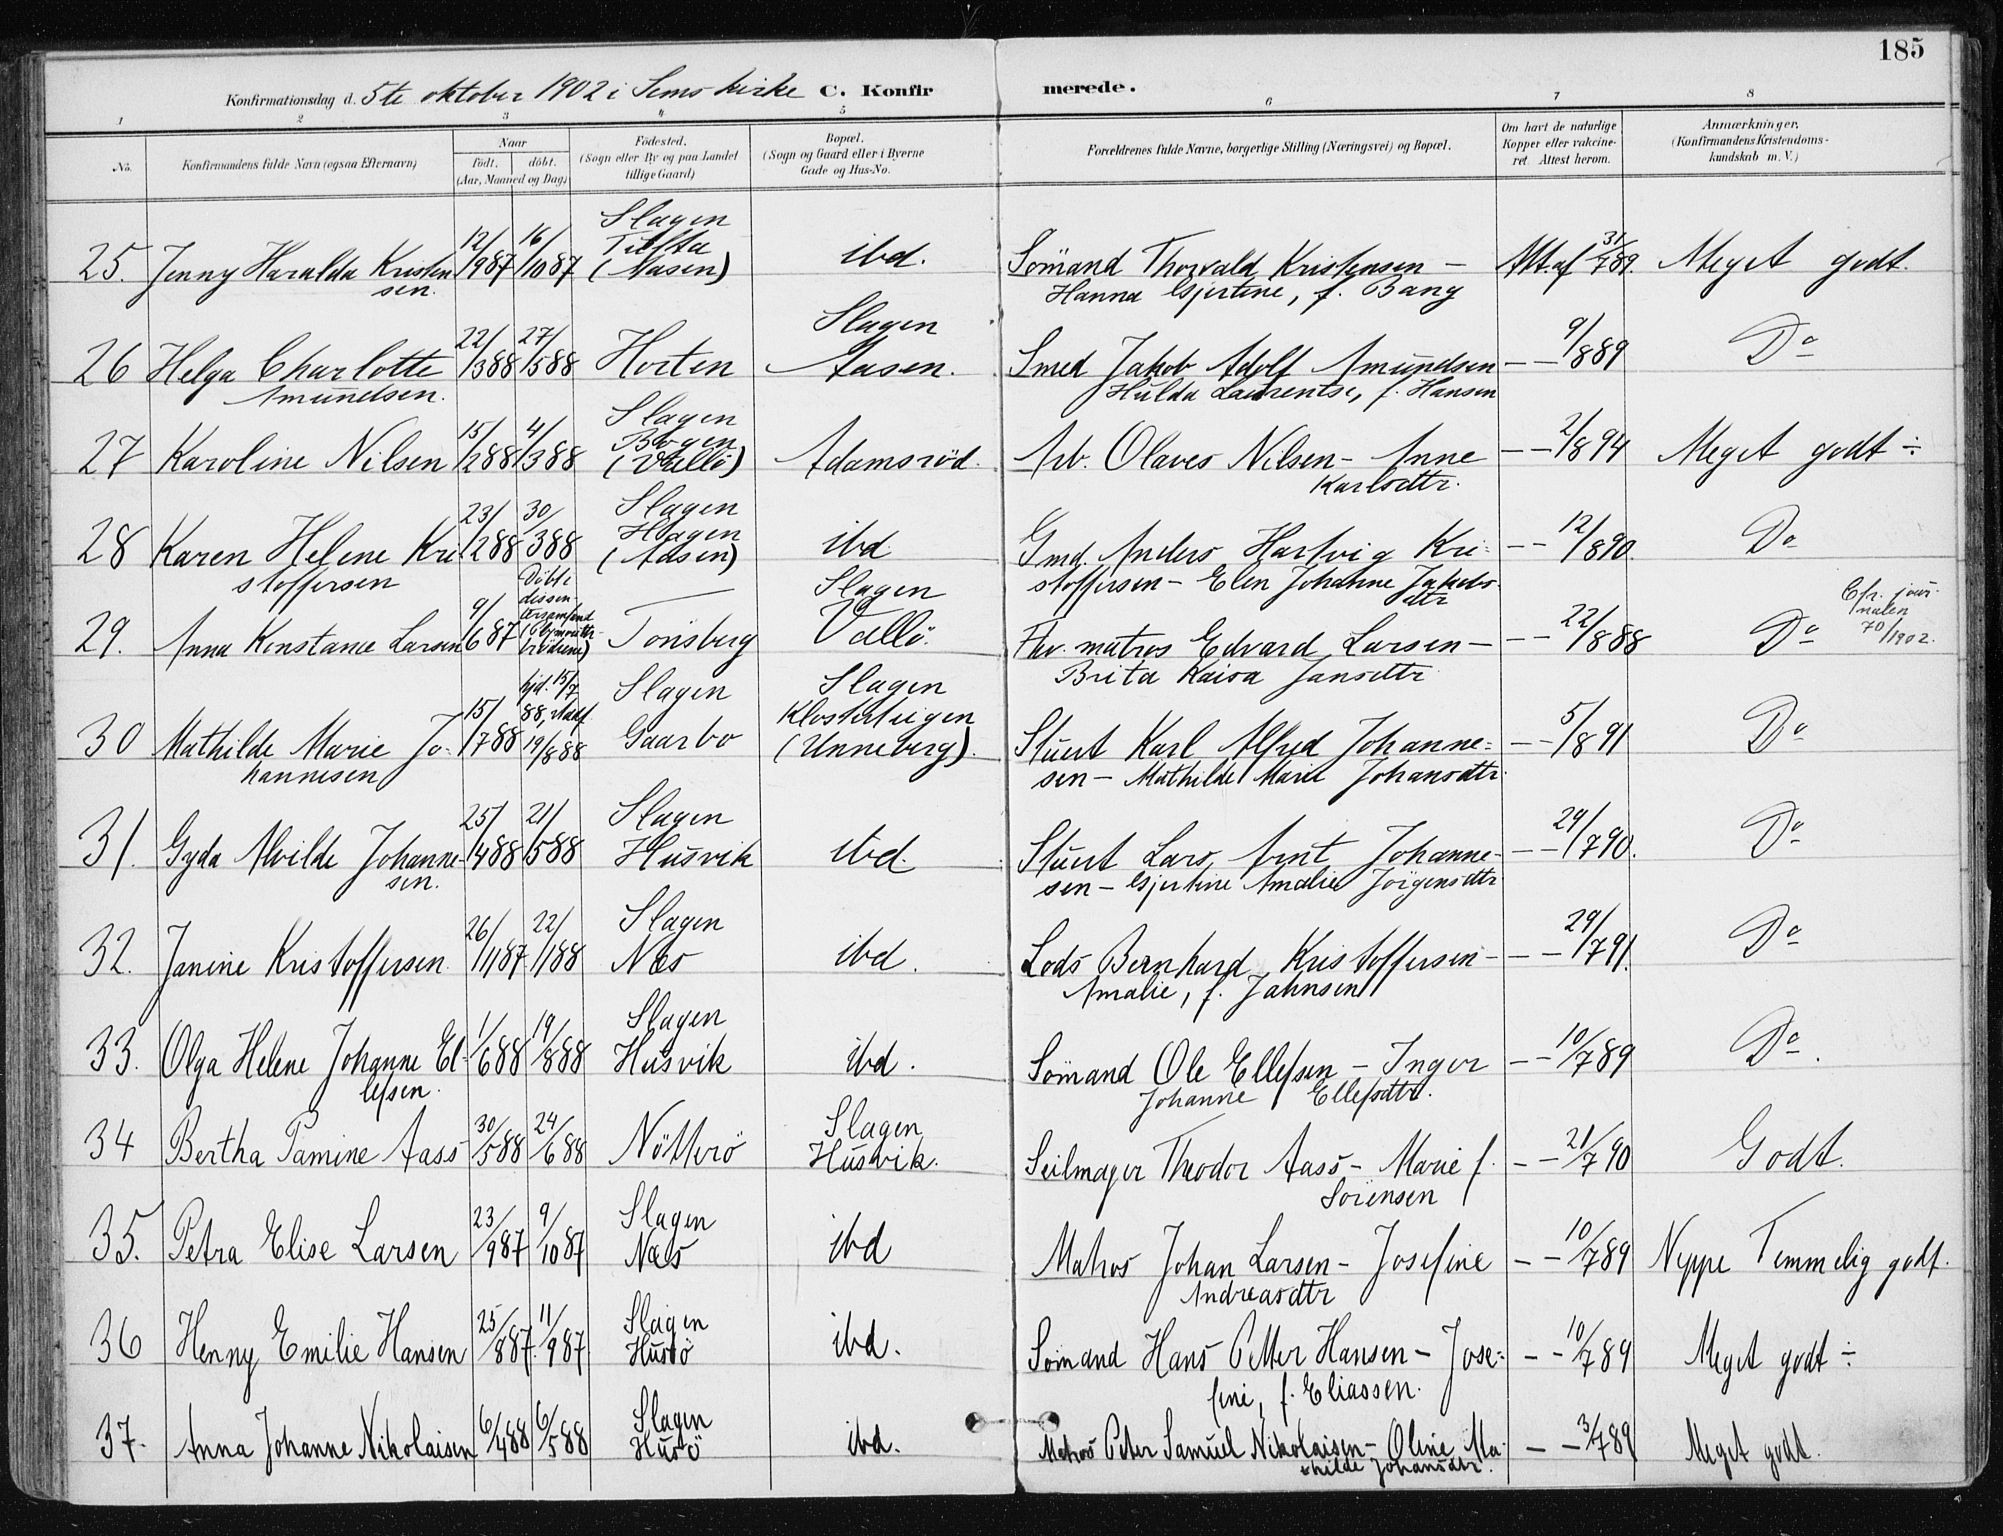 185
Konfirmationsdag d. 5te oktober 1902 i Sems kirke C. Konfir merede.
1 2 3 4 5 6 7 8
No. Konfirmandens fulde Navn (ogsaa Efternavn) Naar födt. döbt. (Aar, Maaned og Dag) Födested. (Sogn eller By og paa Landet tillige Gaard) Bopæl. (Sogn og Gaard eller i Byerne Gade og Hus-No. Forældrenes fulde Navne, borgerlige Stilling (Næringsvei) og Bopæl. Om havt de naturlige Kopper eller vakcineret. Attest herom. Anmærkninger. (Konfirmandens Kristendomskundskab m. V.)
25. Jenny Haralda Kristensen. 12/987 16/1087 Slagen (Aasen) ibd. Sömand Thorvald Kristensen – Att. af 31/789. Meget godt.
Hanna Gjertine, f. Bang
26 Helga Charlotte Amundsen. 22/388 27/588 Horten Slagen Aasen. Smed Jakob Adolf Amundsen – – 9/889 Do
Hulda Laurentse, f. Hansen
27 Karoline Nilsen 15/288 4/388 Slagen Bogen (Vallö) Adamsröd. Arb. Olaves Nilsen – Anne – – 2/894 Meget godt ÷
Karlsdtr.
28 Karen Helene Kristoffersen 23/288 30/388 Slagen Hagen (Aasen) ibd Gmd. Anders Hartvig Kri= – – 12/890 Do
stoffersen – Elen Johanne Jakobsdtr
29. Anna Konstance Larsen 9/687 Döbt i dissentersamfund (Plymouthbrödrene) Tönsberg Slagen Vallö. Fhv. matros Edvard Larsen – – – 22/888 Do Cfr. journalen 70/1902.
Brita Kaisa Jansdtr
30 Mathilde Marie Johannesen 15/788 hjd. 15/7 88, stadf. 19/888 Slagen Gaarbo Slagen Klosterteigen (Unneberg). Stuert Karl Alfred Johanne= – – 5/891 Do
sen – Mathilde Marie Johansdtr.
31. Gyda Alvilde Johannesen. 25/488 21/588 Slagen Husvik ibd. Stuert Lars Arnt Johanne- – – 29/790. Do
sen – Gjertine Amalie Jörgensdtr
32. Janine Kristoffersen. 26/1187 22/188 Slagen Næs ibd. Lods Bernhard Kristoffersen – – – 29/791. Do
Amalie, f. Jahnsen
33. Olga Helene Johanne Ellefsen. 1/688 19/888 Slagen Husvik ibd. Sömand Ole Ellefsen – Inger – – 10/789 Do.
Johanne Ellefsdtr.
34 Bertha Pamine Aass 30/588 24/688 Nötterö Slagen Husvik. Seilmager Theodor Aass – Marie f. – – 21/790 Godt.
Sörensen
35. Petra Elise Larsen 23/987 9/1087 Slagen Næs ibd Matros Johan Larsen – Josefine – – 10/789 Neppe Temmelig godt.
Andreasdtr
36 Henny Emilie Hansen 25/887. 11/987. Slagen Husö ibd. Sömand Hans Petter Hansen – Jose= – – 10/789 Meget godt ÷
fine, f. Eliassen.
37. Anna Johanne Nikolaisen 6/488 6/588 Slagen Husö ibd. Matros Peter Samuel Nikolaisen – Oline Ma- – – 3/789 Meget godt.
thilde Johansdtr.